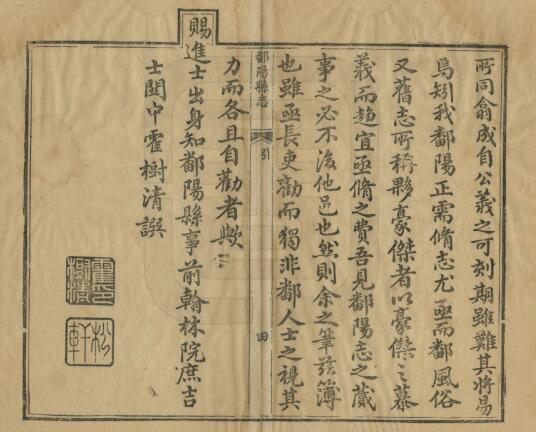 所同翕成自公義之可刻期雖難其將易
烏矧我鄱陽正需脩志尤亟而鄱風俗
又舊志所稱夥豪傑者以豪傑之慕
義而趨宜亟脩之費吾見鄱陽志之蕆
事之必不後他邑也然則余之筆玆簿
也雖亟長吏勸而獨非鄱人士之視其
鄱陽縣志
引
四
力而各且自勸者歟
賜進士出身知鄱陽縣事前翰林院庶吉
士關中霍樹清譔
霍印樹清
松軒